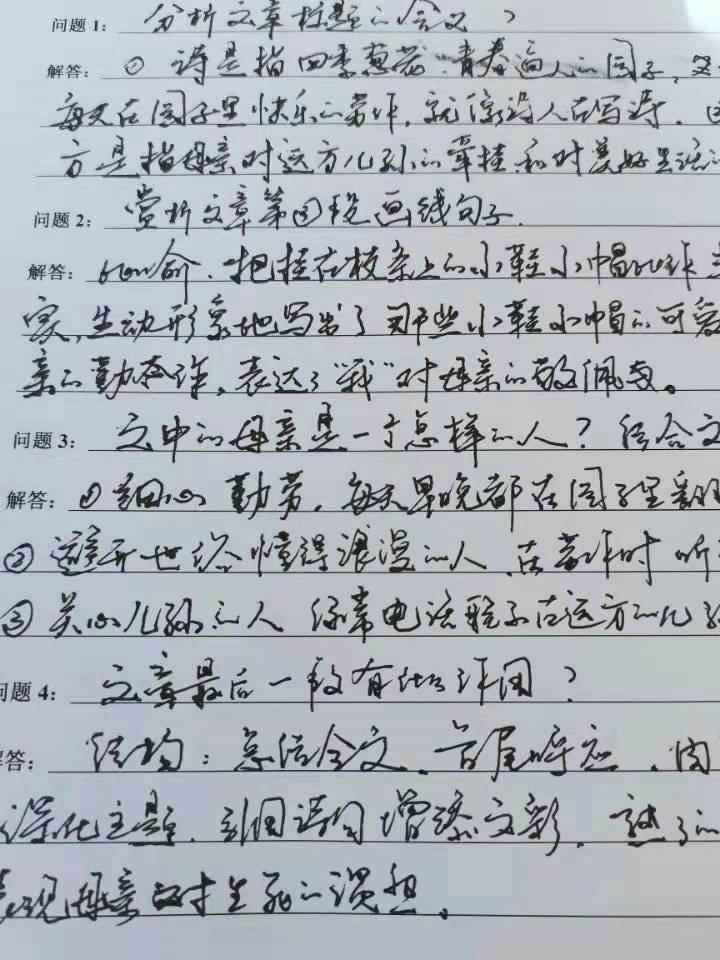 问题1: 分析文章标题的含义?
解答: ①诗是指四季葱茏、青春逼人的园子,
每天在园子里快乐的劳作,就像诗人在写诗.
方是指母亲对远方儿孙的牵挂和对美好生活
问题2: 赏析文章第四段画线句子.
解答: 比喻.把挂在枝条上的小鞋小帽比作
实,生动形象地写出了那些小鞋小帽的可爱
亲的勤劳,表达了“我”对母亲的敬佩
问题3: 文中的母亲是一个怎样的人?结合文
解答: ①细心勤劳,每天早晚都在园子里
②避开世俗懂得浪漫的人.在劳作时听
③关心儿孙的人 经常电话 在远方的儿
问题4: 文章最后一段有什么作用?
答: 结构:总结全文、首尾呼应.内
深化主题.引用诗句增添文彩.
表现母亲对生死的坦.